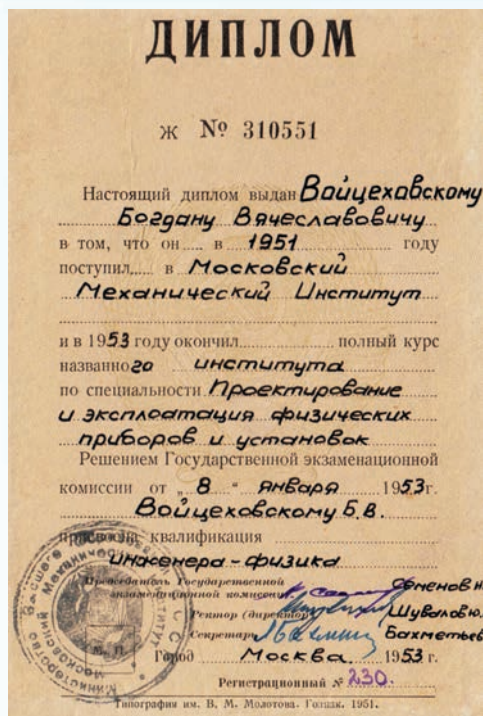 ДИПЛОМ
Ж № 310551
Настоящий диплом выдан Войцеховскому
Богдану Вячеславовичу
в том, что он в 1951 году
поступил в Московский
Механический Институт
и в 1953 году окончил полный курс
названного института
по специальности Проектирование
и эксплоатация физических
приборов и установок
Решением Государственной экзаменационной
комиссии от „ 8 “ января 1953 г.
Войцеховскому Б.В.
присвоена квалификация
инженера-физика
Председатель Государственной
экзаменационной комиссии Семенов
Ректор (директор) Шувалов
Секретарь Бахметьев
Город Москва. 1953 г.
Регистрационный № 230.
Типография им. В. М. Молотова. Гознак. 1951.